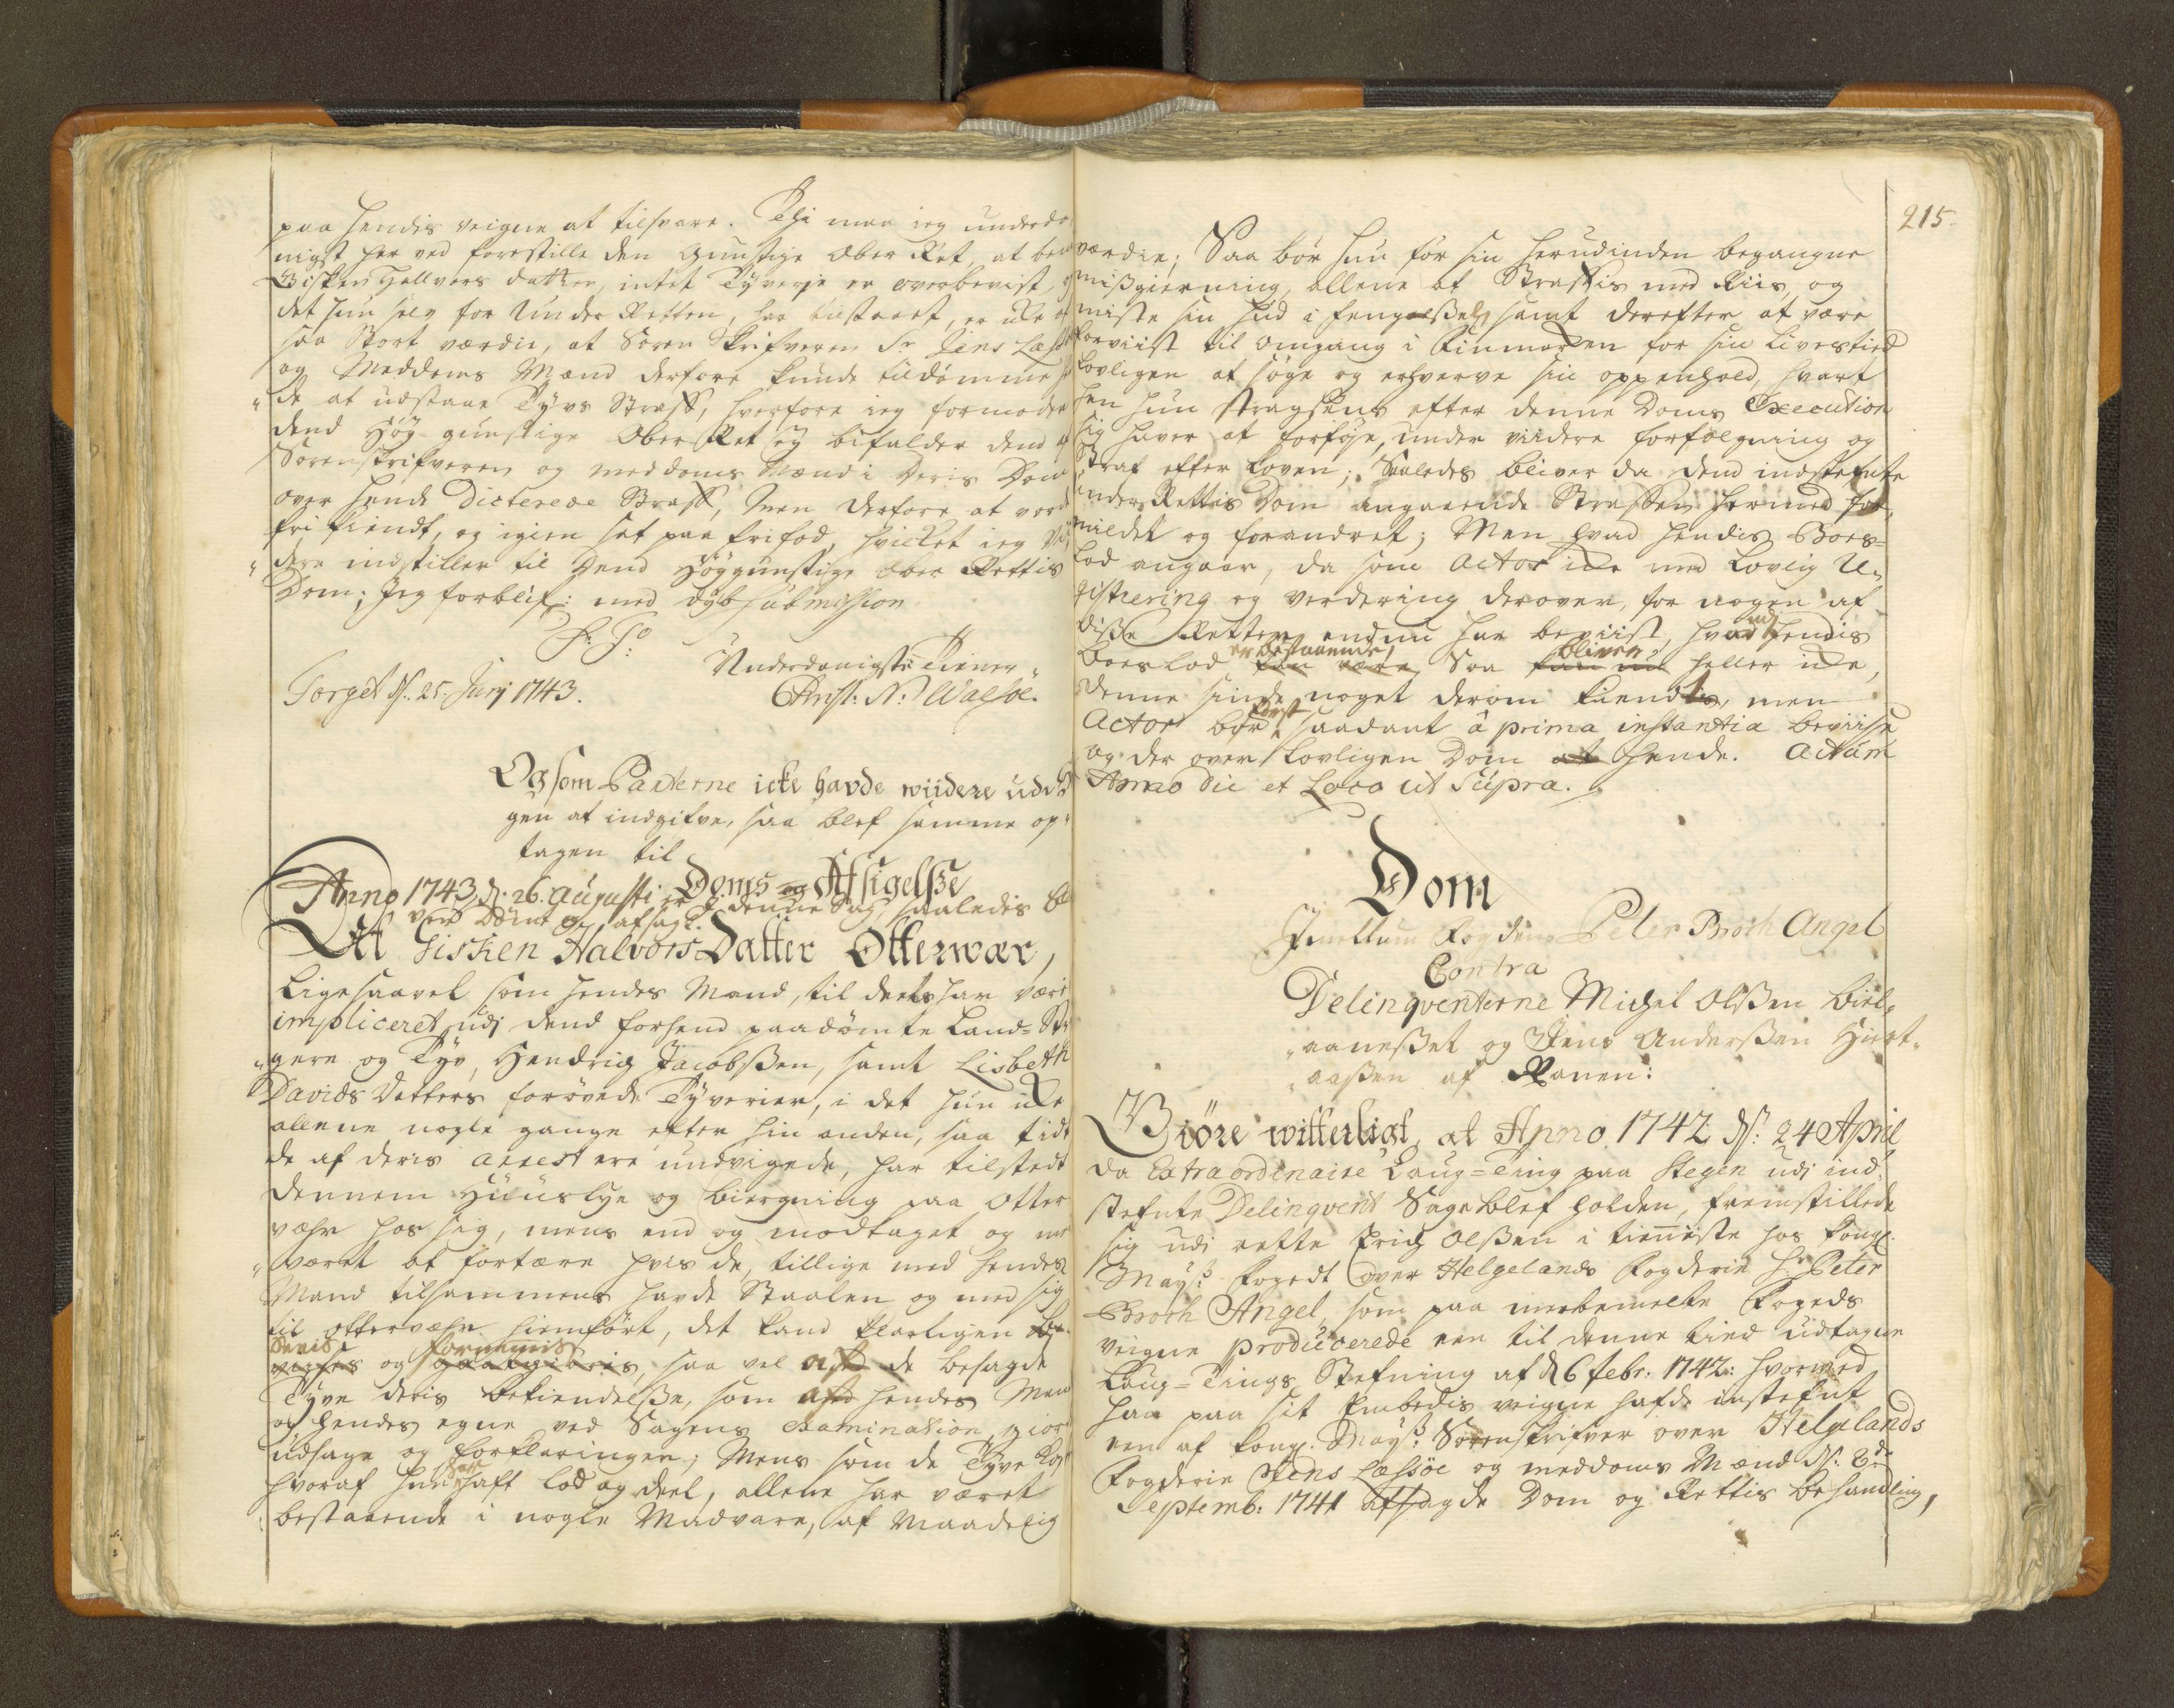 paa hendis veigne at tilsvare. Thi maa ieg underda
nigst her ved forestille den gunstige Ober Ret, at be
Gisken Hallvors datter, intet Tyverje er overbevist, 
det hun selv for Under Retten, har tilstaaet, er icke af
saa Stort værdie, at Soren Skrifveren Sr Jens Læssøe
og Meddoms Mænd derfore kunde tildømme he
de at udstaae Tyvs Straff, hvorfore ieg formoder
dend Høÿ-gunstige Ober Ret eÿ bifalder dend af
Sorenskrifveren og meddoms Mænd i deris Dom
over hende Dicterede Straff, Men derfore at vorde
fri kiendt, og igien sat paa frifod, hvilket ieg Vi
dere indstiller til Dend Høÿgunstige Ober Rettis
Dom; Jeg forblif: med dÿb submission
Underdanigste Tiener
Torget d: 25 Junj 1743.
Christ: N: Walsøe.
Og som Parterne icke havde wiidere udi Sa
gen at indgifve, saa blef samme op
tagen til
Doms og Afsigelsse
Anno 1743, d: 26. Augusti er i denne Sag saaledis ble
ven Dømt og afsagt.
At Gisken Halvors Datter Otterwær,
Ligesaavel som hendes Mand, til deels har være
impliceret udj dend forhend paadømte Land-Str
gere og Tyv, Hendrich Jacobssen, samt Lisbeth
Davids Datters forøvede Tyverier, i det hun icke
allene nogle gange efter hin anden, saa tidt
de af deris arrest ere undvigede, har tilstedt
dennem Huuslye og biergning paa Otter
vær hos sig, mens end og modtaget og me
været at fortære hvis de, tillige med hendes
Mand tilsammens hafde Staalen og med sig
til Ottervær hiemført, det kand klarligen be
vises og saa vel af de besagde
Tyve deris bekiendelsse, som af hendes Man
og hendes egne ved Sagens Examination, gior
udsage og forklaringer; Mens som de Tyve Ko
hvoraf hun har haft lod og deel, allene har været
bestaaende i nogle Madvare, af Maadelig
215.
værdie; Saa bør hun for sin herudinden begangne
missgierning, allene at Straffis med Riis, og
miste sin hud i fengelsset, samt derefter at være
forviist til omgang i Finmarken for sin Livestied
Lovligen at søge og erhverve sin oppenhold, hvart
hen hun stragsens efter denne Doms Execution
sig haver at forføje, under viidere forfølgning og
Straf efter Loven; Saaledes bliver da dend indstefnte
under Rettis Dom angaaende Straffen hermed for-
mildet og forandret; Men hvad hendis Boes-
lod angaar, da som Actor icke med Lovlig Re-
gistrering og verdering derover, for nogen af
disse Retter endnu har beviist, hvad udj hendis
boeslod er bestaaende, Saa bliver heller icke,
denne sinde noget derom kiendt, men
Actor bør først saadant à prima instantia beviise
og der over Lovligen Dom hende. Actum
Anno die et Loco ut Supra.
Dom
Jmellum Fogden Peter Broch Angel
Contra
Delinqventerne Michel Olssen Biel-
aanesset og Jens Anderssen Hiort-
aassen af Ranen:
Giöre witterligt, at Anno 1742 d: 24 April
da Extraordinaire Laug-Ting paa Stegen udj ind
stefnte Delinqvent Sage blef holden, fremstillede
sig udi rette Erich Olssen i tienniste hos Kongl.
Mayts: fogedt over Helgelands Fogderie Hr Peter
Broch Angel, som paa merbemelte Fogeds
veigne producerede een til denne tied udtagne
Laug-Tings Stefning af d 6 febr: 1742: hvorved
han paa sit Embedis veigne hafde instefnt
een af Kongl. Mayts: Sorenskrifver over Helgelands
Fogderie Jens Læssøe og meddoms Mænd d: 2de
Septemb: 1741 afsagde Dom og Rettis behandling,